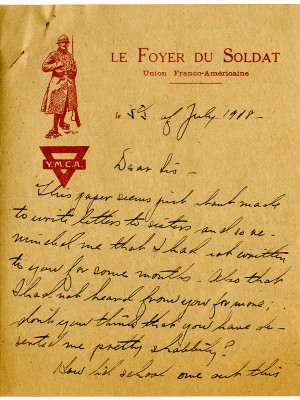 LE FOYER DU SOLDAT
Union Franco-Américaine
Y.M.C.A.
le of July 1918 -
Dear Sis -
This paper seems just made
to write letters to sisters and so re-
minded me that I had not written
to you for some months. Also that
I had not heard from you for more;
don't you think that you have de-
serted me pretty shabbily?
How did school come out this